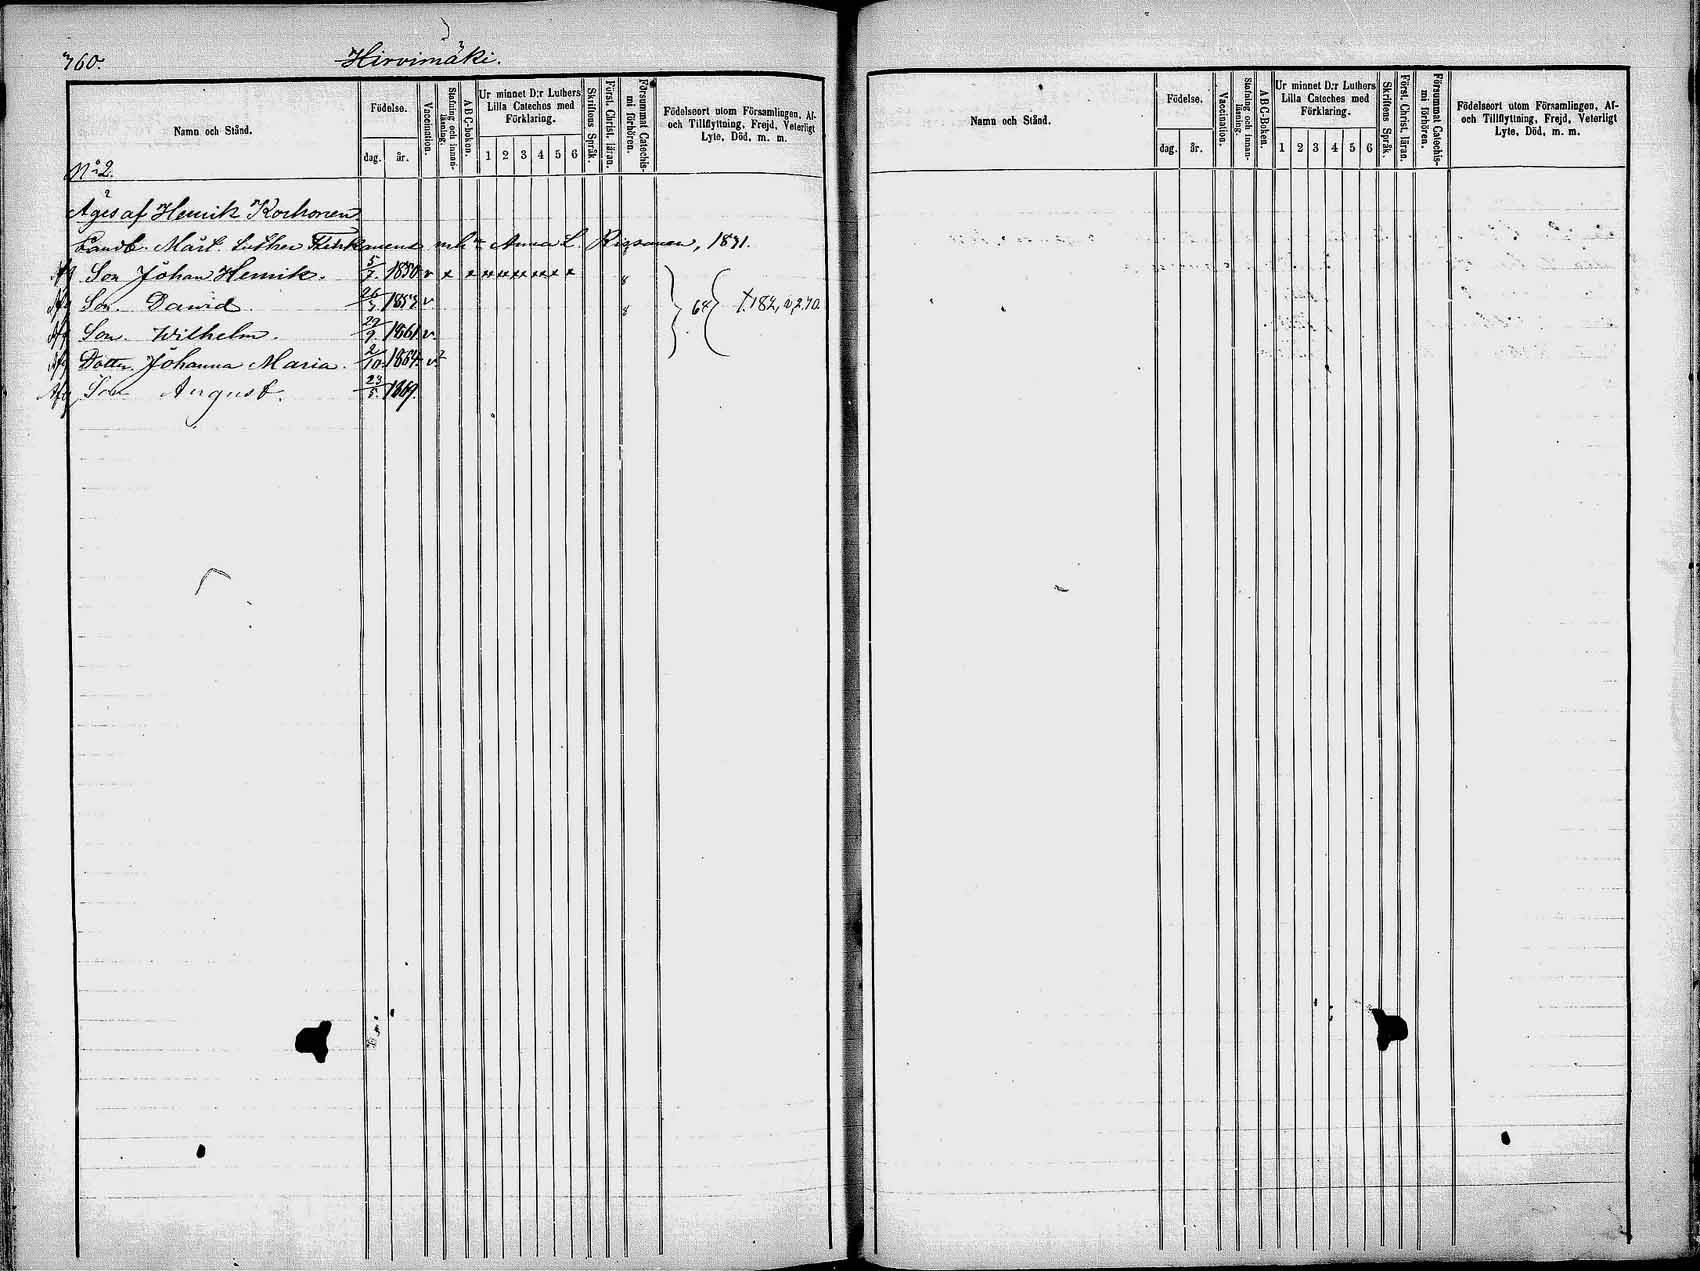 360.
Hirvimäki.
Namn och Stånd.
Födelse.
dag. år.
Vaccination.
Stafning och innanläsning.
ABC-boken.
Ur minnet D:r Luthers Lilla Cateches med Förklaring.
1 2 3 4 5 6
Skriftens Språk.
Först. Christ. läran.
Försummat Catechismi förhören.
Födelseort utom Församlingen, Af- och Tillflyttning, Frejd, Veterligt Lyte, Död, m. m.
No 2.
Äges af Henrik Korhonen
Landb. Mårt. Luther mh Anna L. 1831.
Afg Son Johan Henrik. 5/7. 1850 v x x x x x x x x x 8
Afg Son. David. 26 v 8 64 182, 270.
Afg Son. Wilhelm. 29/9. 1861 v.
Afg Dotter. Johanna Maria. 2/10. 1864. v.
Afg Son August. 23 1869.
Namn och Stånd.
Födelse.
dag. år.
Vaccination.
Stafning och innanläsning.
ABC-Boken.
Ur minnet D:r Luthers Lilla Cateches med Förklaring.
1 2 3 4 5 6
Skriftens Språk.
Först. Christ. läran.
Försummat Catechismi förhören.
Födelseort utom Församlingen, Af- och Tillflyttning, Frejd, Veterligt Lyte, Död, m. m.